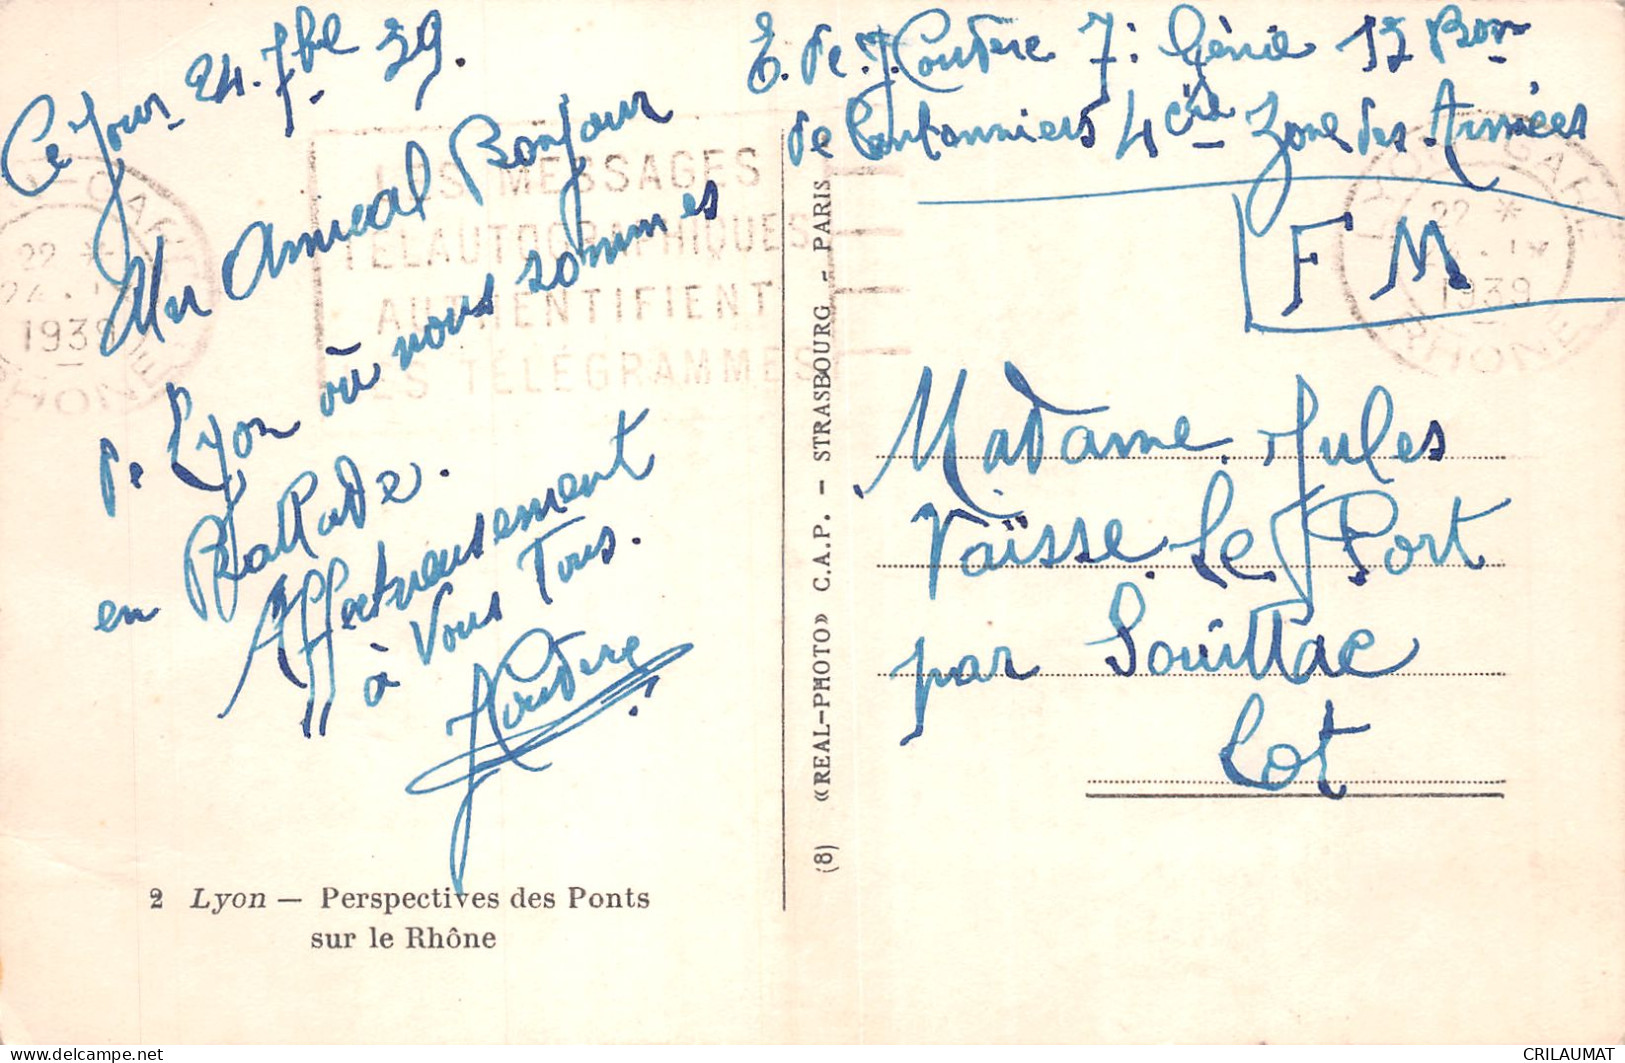 Ce jour 24. 7bre 39.
Un Amical Bonjour
de Lyon où nous sommes
en Ballade.
Affectueusement
à Vous Tous.
J Coudere
2 Lyon — Perspectives des Ponts
sur le Rhône
LES MESSAGES
TÉLAUTOGRAPHIQUES
AUTHENTIFIENT
LES TÉLÉGRAMMES
(8) «REAL-PHOTO» C.A.P. - STRASBOURG - PARIS
E. de J. Coudere 7: Génie 12 Bon
de Cantonniers 4 Cie Zone des Armées
F M
LYON GARE
22 *
1939
RHONE
Madame Jules
Vaïsse. Le Port
par Souillac
Lot
CRILAUMAT